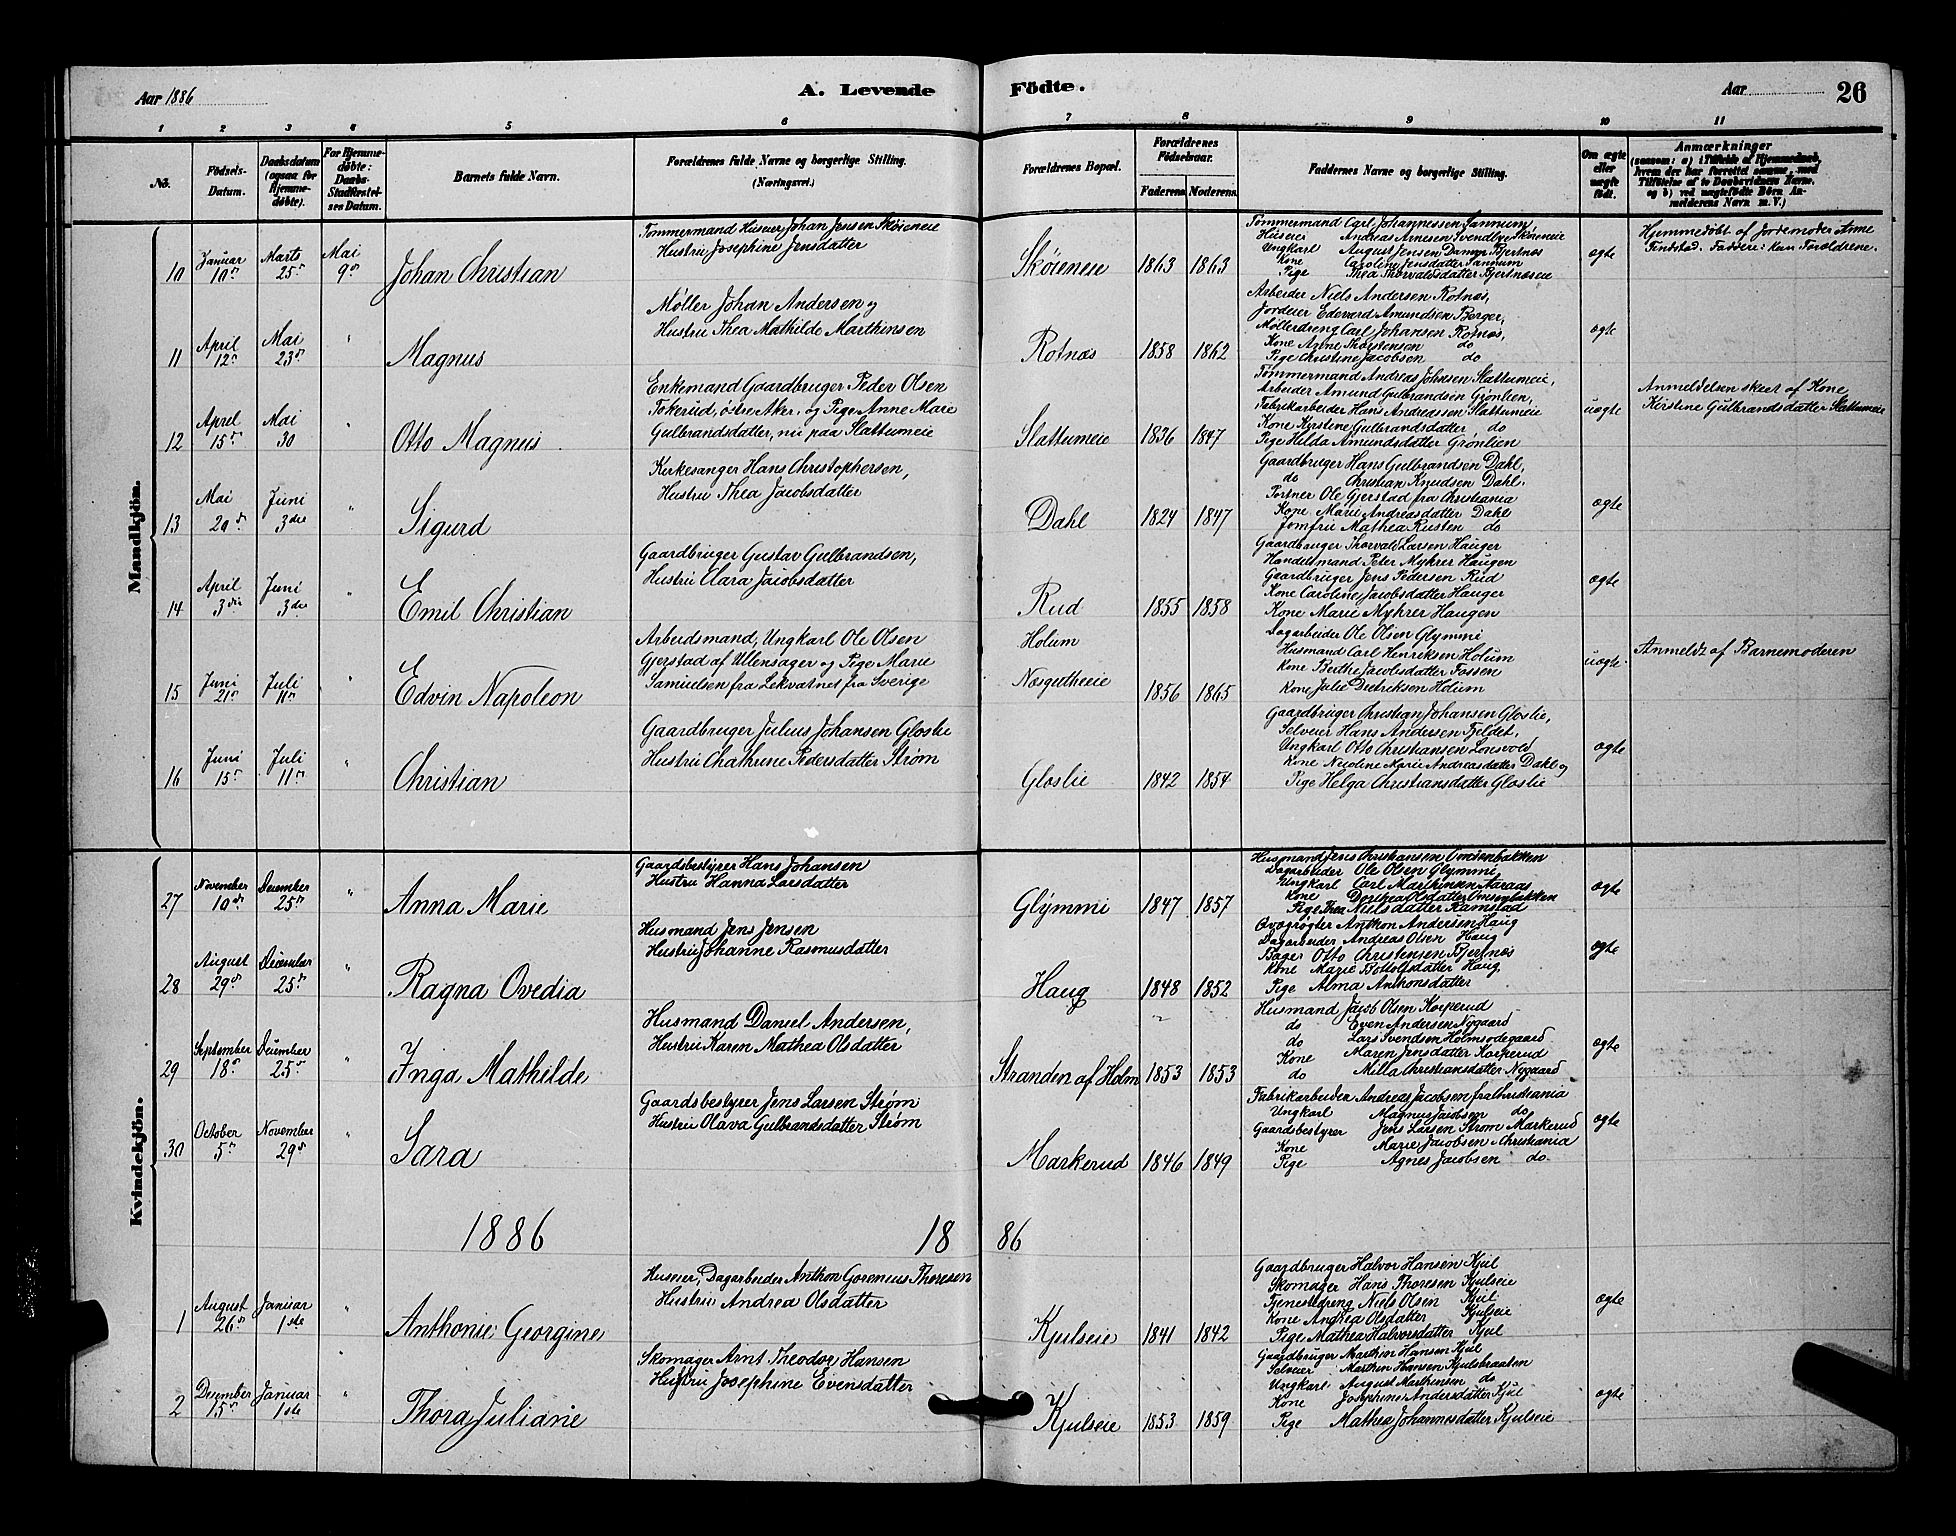 Aar 1886
A. Levende Födte.
Aar
26
1 2 3 4 5 6 7 8 9 10 11
No.
Födsels-Datum.
Daabsdatum (ogsaa for Hjemme-døbte).
For Hjemme-døbte: Daabs-Stadfæstel-ses Datum.
Barnets fulde Navn.
Forældrenes fulde Navne og borgerlige Stilling. (Næringsvei.)
Forældrenes Bopæl.
Forældrenes Födselsaar.
Faderens. Moderens.
Faddernes Navne og borgerlige Stilling.
Om ægte eller uægte födt.
Anmærkninger
(saasom: a) i Tilfælde af Hjemmedaab, hvem der har forrettet samme, med Tilföielse af to Daabsvidners Navne, og b) ved uægtefödte Börn Anmelderens Navn m. V.)
Mandkjön.
10 Januar 10de Marts 25de Mai 9de Johan Christian
Tømmermand Huseier Johan Jensen Skøieneie
Hustru Josephine Jensdatter
Skøieneie 1863 1863
Tømmermand Carl Johannessen Tannum,
Huseier Andreas Arnesen Svendby Skøieneie
Ungkarl August Jensen Damyr Bjertnæs
Kone Caroline Jensdatter Tannum
Pige Thea Thorvaldsdatter Bjertnæseie
ægte
Hjemmedøbt af Jordemoder Anne
Tindstad. Faddere: kun Forældrene.
11 April 12te Mai 23de " Magnus
Møller Johan Andersen og
Hustru Thea Mathilde Marthinsen
Rotnæs 1858 1862
Arbeider Niels Andersen Rotnæs,
Jordeier Edevard Amundsen Berger,
Møllerdreng Carl Johansen Rotnæs,
Kone Anne Thorstensen do
Pige Christine Jacobsen do
ægte
12 April 15de Mai 30 " Otto Magnus
Enkemand Gaardbruger Peder Olsen
Tokerud, østre Aker, og Pige Anne Marie
Gulbrandsdatter, nu paa Slattumeie
Slattumeie 1836 1847
Tømmermand Andreas Johnsen Slattumeie,
Arbeider Amund Gulbrandsen Grønlien,
Fabrikarbeider Hans Andreassen Slattumeie
Kone Kirstine Gulbrandsdatter do
Pige Helda Amundsdatter Grønlien
uægte
Anmeldelsen skeet af Kone
Kirstine Gulbrandsdatter Slattumeie
13 Mai 20de Juni 3die " Sigurd
Kirkesanger Hans Christophersen,
Hustru Thea Jacobsdatter
Dahl 1824 1847
Gaardbruger Hans Gulbrandsen Dahl,
do Christian Knudsen Dahl,
Portner Ole Gjerstad fra Christiania
Kone Marie Andreasdatter Dahl
Jomfru Mathea Rusten do
ægte
14 April 3die Juni 3die " Emil Christian
Gaardbruger Gustav Gulbrandsen,
Hustru Clara Jacobsdatter
Rud 1855 1858
Gaardbruger Thorvald Larsen Hauger
Handelsmand Peter Myhrer Haugen
Gaardbruger Jens Pedersen Rud
Kone Caroline Jacobsdatter Hauger
Kone Marie Myhrer Haugen
ægte
15 Juni 21de Juli 11te " Edvin Napoleon
Arbeidsmand, Ungkarl Ole Olsen
Gjerstad af Ullensager og Pige Marie
Samuelsen fra Lekvatnet fra Sverige
Holum
1856 1865
Dagarbeider Ole Olsen Glymmi
Husmand Carl Henriksen Holum
Kone Berthe Jacobsdatter Fossen
Kone Julie Diedriksen Holum
uægte
Anmeldt af Barnemoderen
16 Juni 15de Juli 11te " Christian
Gaardbruger Julius Johansen Gloslie
Hustru Chathrine Pedersdatter Strøm
Gloslie 1842 1854
Gaardbruger Christian Johansen Gloslie,
Selveier Hans Andersen Fjeldet,
Ungkarl Otto Christiansen Lonsvold
Kone Nicoline Marie Andreasdatter Dahl og
Pige Helga Christiansdatter Gloslie
ægte
Kvindekjön.
27 November 10de December 25de " Anna Marie
Gaardsbestyrer Hans Johansen
Hustru Hanna Larsdatter
Glymmi 1847 1857
Husmand Jens Christiansen Omsenbakken
Dagarbeider Ole Olsen Glymmi
Ungkarl Carl Marthinsen Aaraas
Kone Dorthea Olsdatter Omsenbakken
Pige Thea Nielsdatter Ramstad
ægte
28 August 29de December 25de " Ragna Ovedia
Husmand Jens Jensen
Hustru Johanne Rasmusdatter
Haug 1848 1852
Qvægrøgter Anthon Andersen Haug
Dagarbeider Andreas Olsen Haug
Bager Otto Christensen Bjertnæs
Kone Marie Bottolfsdatter Haug
Pige Alma Anthonsdatter
ægte
29 September 18de December 25de " Inga Mathilde
Husmand Daniel Andersen,
Hustru Karen Mathea Olsdatter
Stranden af Holm 1853 1853
Husmand Jacob Olsen Korkerud
do Even Andersen Nygaard
do Lars Svendsen Holmsødegaard
Kone Maren Jensdatter Korkerud
do Milla Christiansdatter Nygaard
ægte
30 October 5te November 29de " Sara
Gaardsbestyrer Jens Larsen Strøm
Hustru Olava Gulbrandsdatter Strøm
Markerud 1846 1849
Fabrikarbeider Andreas Jacobsen fra Christiania
Ungkarl Magnus Jacobsen do
Gaardsbestyrer Jens Larsen Strøm Markerud
Kone Marie Jacobsen Christiania
Pige Agnes Jacobsen do
ægte
1886 18 86
1 August 26de Januar 1ste " Anthonie Georgine
Huseier, Dagarbeider Anthon Gorenius Thoresen
Hustru Andrea Olsdatter
Kjulseie 1841 1842
Gaardbruger Halvor Hansen Kjul
Skomager Hans Thoresen Kjulseie
Tjenestdreng Niels Olsen Kjul
Kone Andrea Olsdatter Kjulseie
Pige Mathea Halvorsdatter Kjul
ægte
2 December 15de Januar 1ste " Thora Juliane
Skomager Arnt Theodor Hansen
Hustru Josephine Evensdatter
Kjulseie 1853 1859
Gaardbruger Marthin Hansen Kjul
Selveier Marthin Hansen Kjulsbraaten
Ungkarl August Marthinsen do
Kone Josephine Andersdatter Kjul
Pige Mathea Johannesdatter Kjulseie
ægte